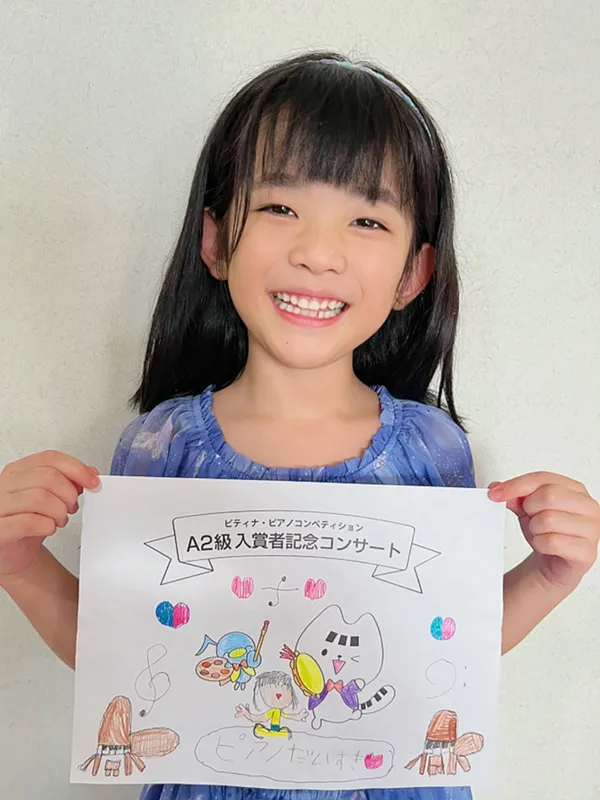 ピティナ・ピアノコンペティション
A2級 入賞者記念コンサート
ピアノだいすき